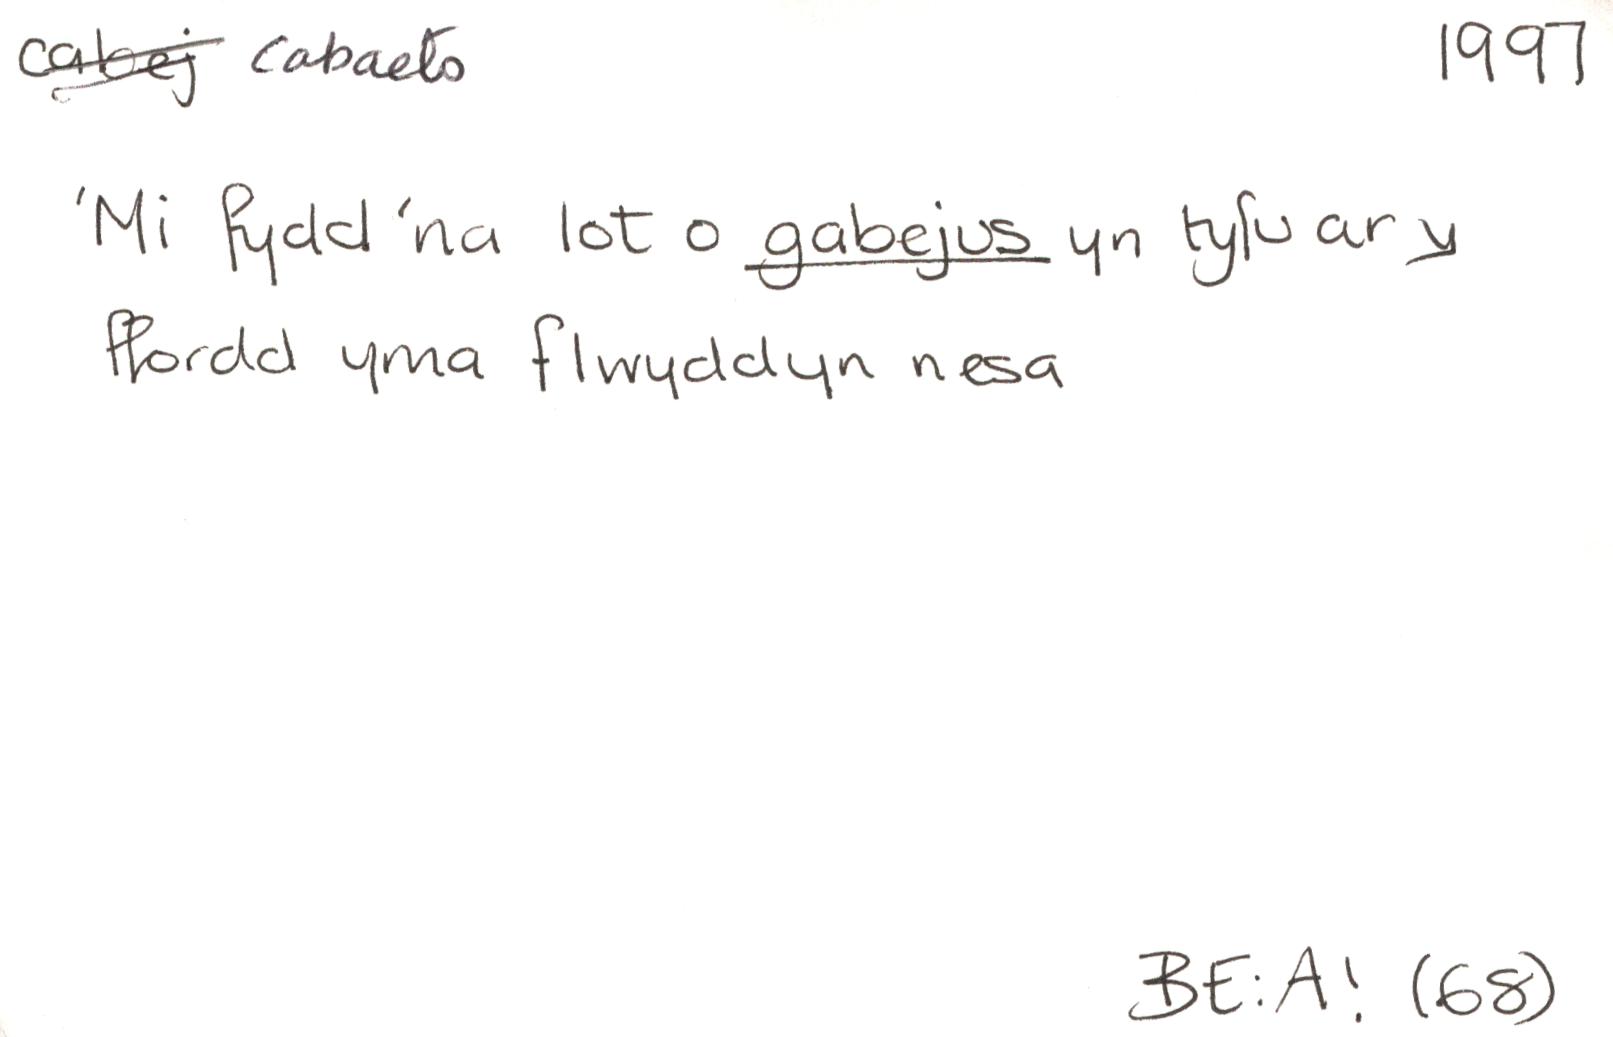 cabej cabaets 1997
'Mi fydd 'na lot o gabejus yn tyfu ar y
ffordd yma flwyddyn nesa
BE:A! (68)